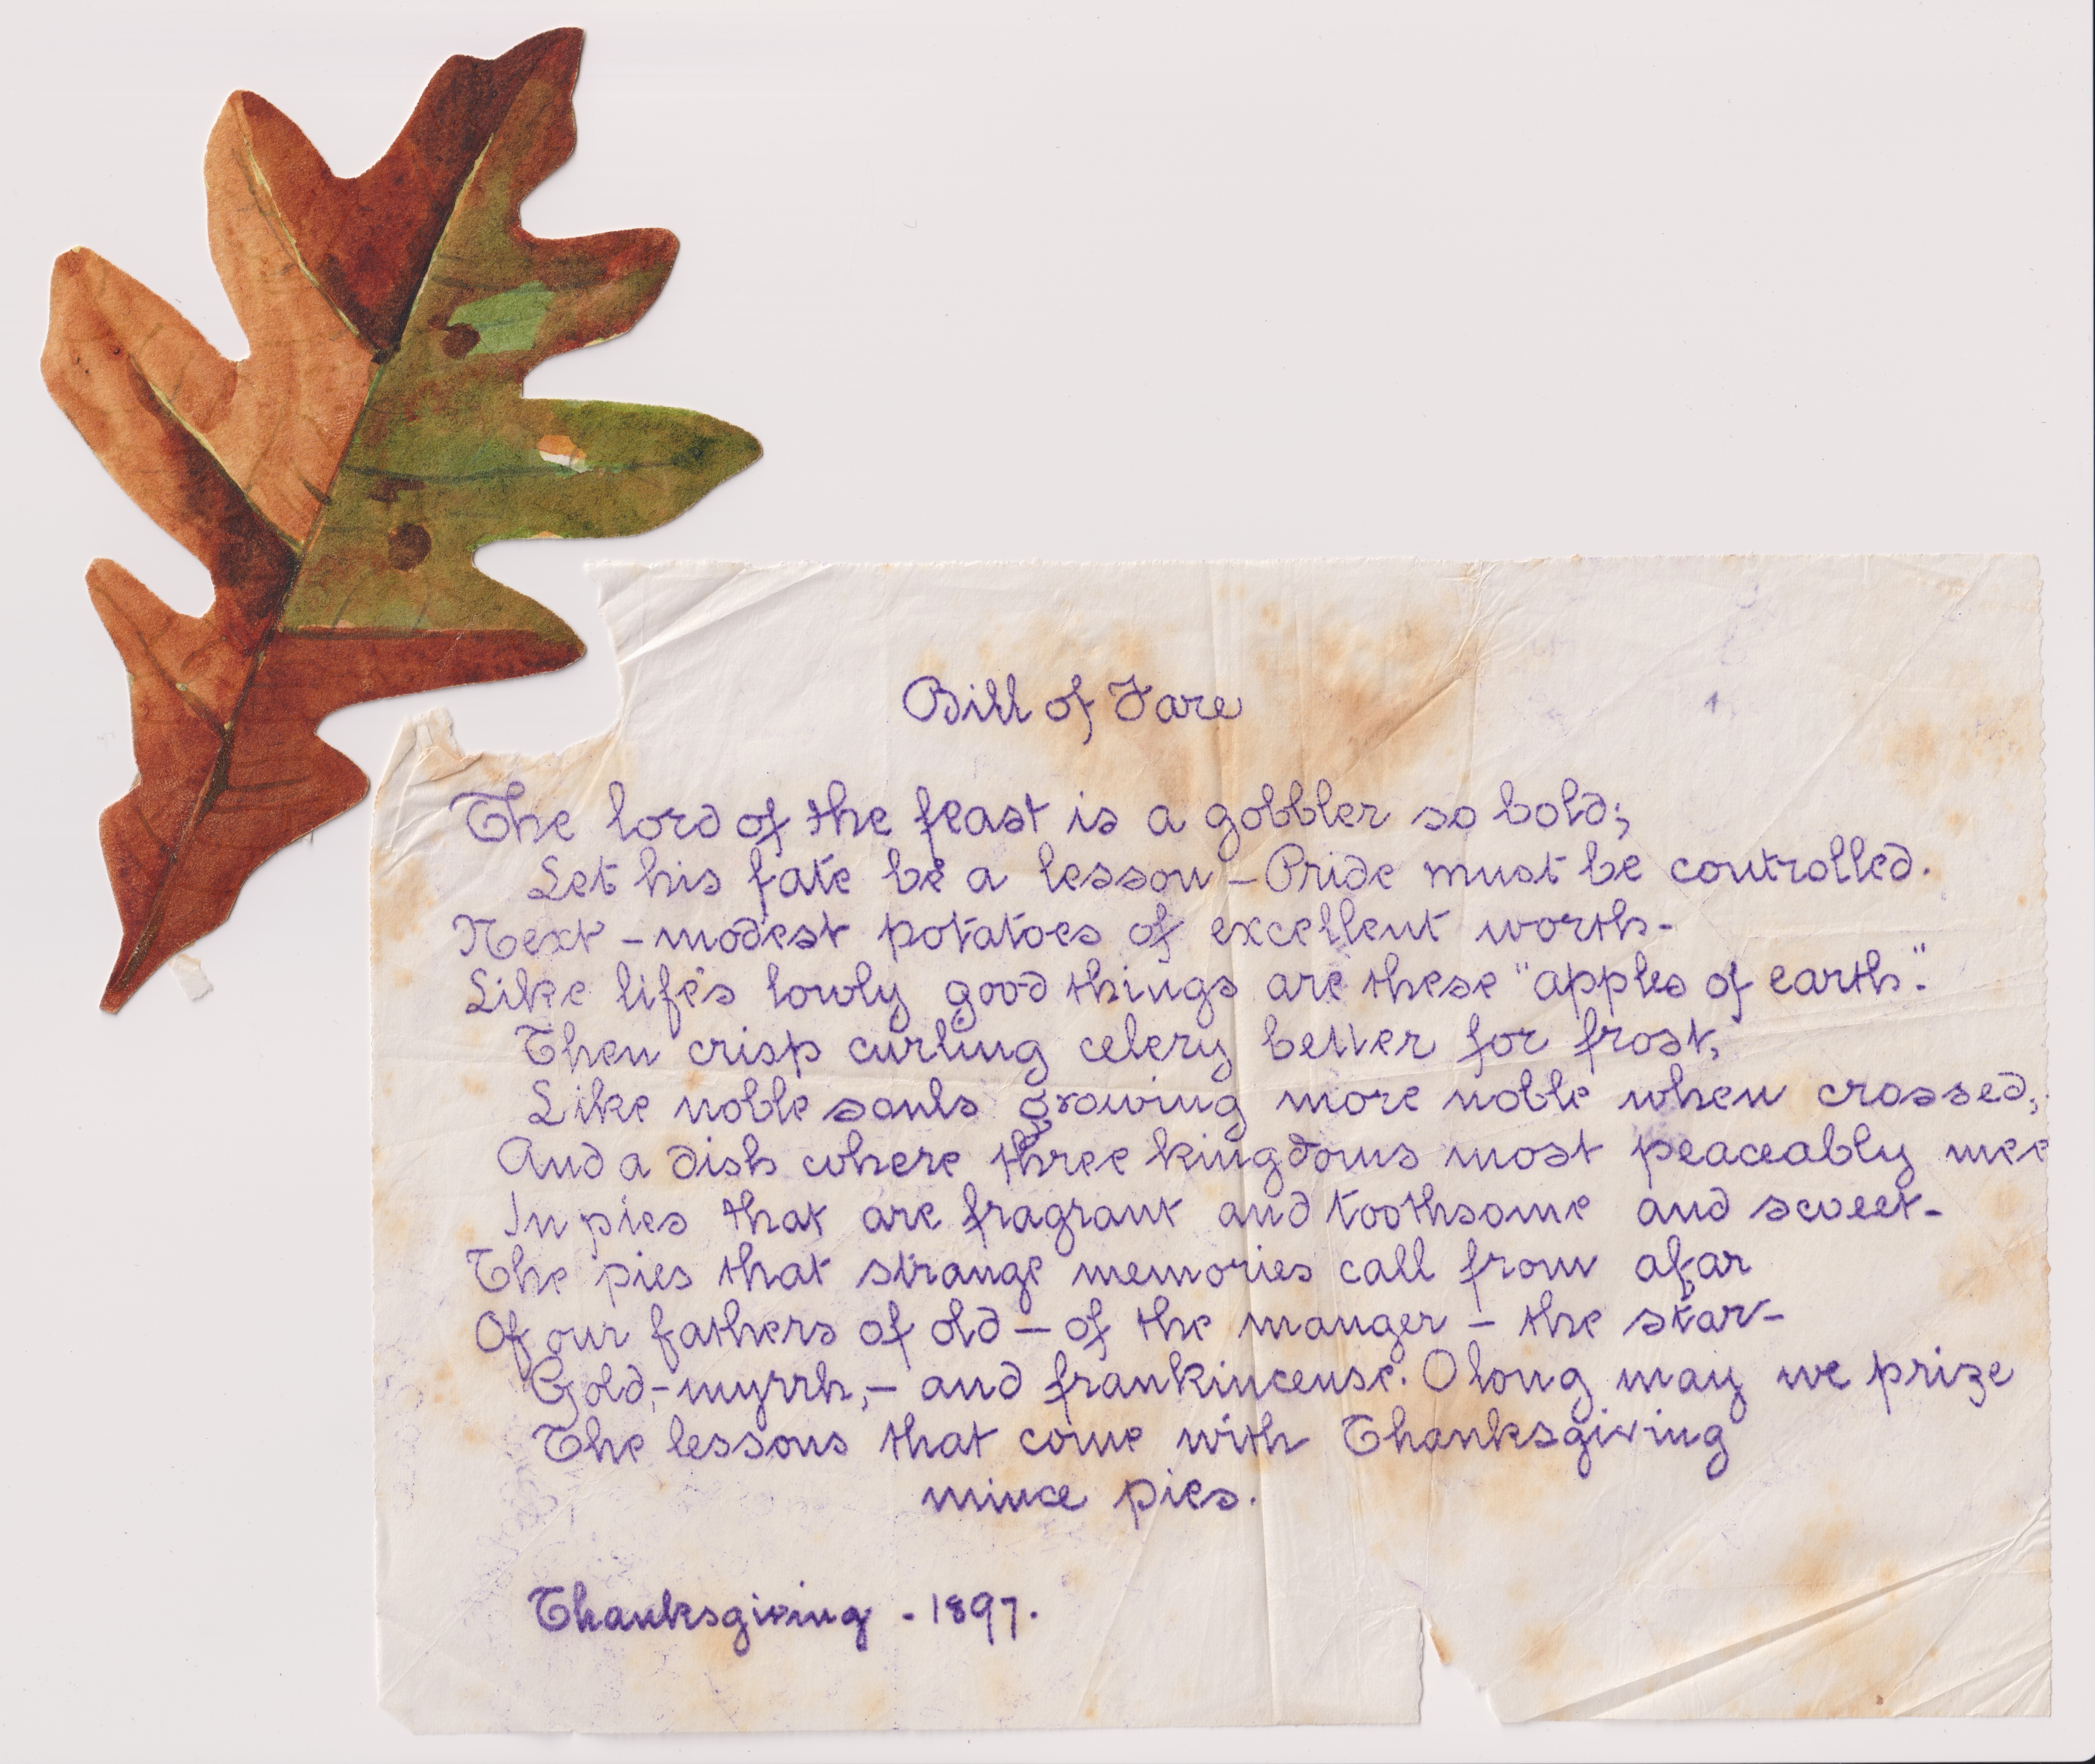 Bill of Fare
The lord of the feast is a gobbler so bold;
Let his fate be a lesson – Pride must be controlled.
Next – modest potatoes of excellent worth –
Like life's lowly good things are these "apples of earth".
Then crisp curling celery better for frost,
Like noble souls growing more noble when crossed;
And a dish where three kingdoms most peaceably mee
In pies that are fragrant and toothsome and sweet –
The pies that strange memories call from afar
Of our fathers of old – of the manger – the star –
Gold, – myrrh, – and frankincense. O long may we prize
The lessons that come with Thanksgiving
mince pies.
Thanksgiving - 1897.